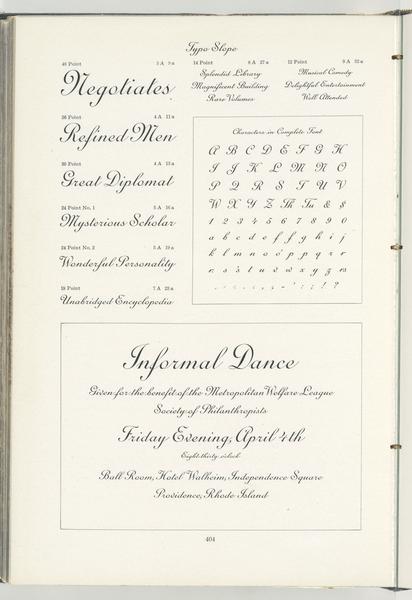 Typo Slope
48 Point 3 A 9 a
Negotiates
36 Point 4 A 11 a
Refined Men
30 Point 4 A 13 a
Great Diplomat
24 Point No. 1 5 A 16 a
Mysterious Scholar
24 Point No. 2 5 A 19 a
Wonderful Personality
18 Point 7 A 23 a
Unabridged Encyclopedia
14 Point 8 A 27 a
Splendid Library
Magnificent Building
Rare Volumes
12 Point 9 A 32 a
Musical Comedy
Delightful Entertainment
Well Attended
Characters in Complete Font
A B C D E F G H
I J K L M N O
P Q R S T U V
W X Y Z Th Tu & $
1 2 3 4 5 6 7 8 9 0
a b c d e f g h i j
k l m n o o' p p q r r
r s s t u v w x y z rs
. , - : ; ! ?
Informal Dance
Given for the benefit of the Metropolitan Welfare League
Society of Philanthropists
Friday Evening, April 4th
Eight-thirty o'clock
Ball Room, Hotel Walheim, Independence Square
Providence, Rhode Island
404